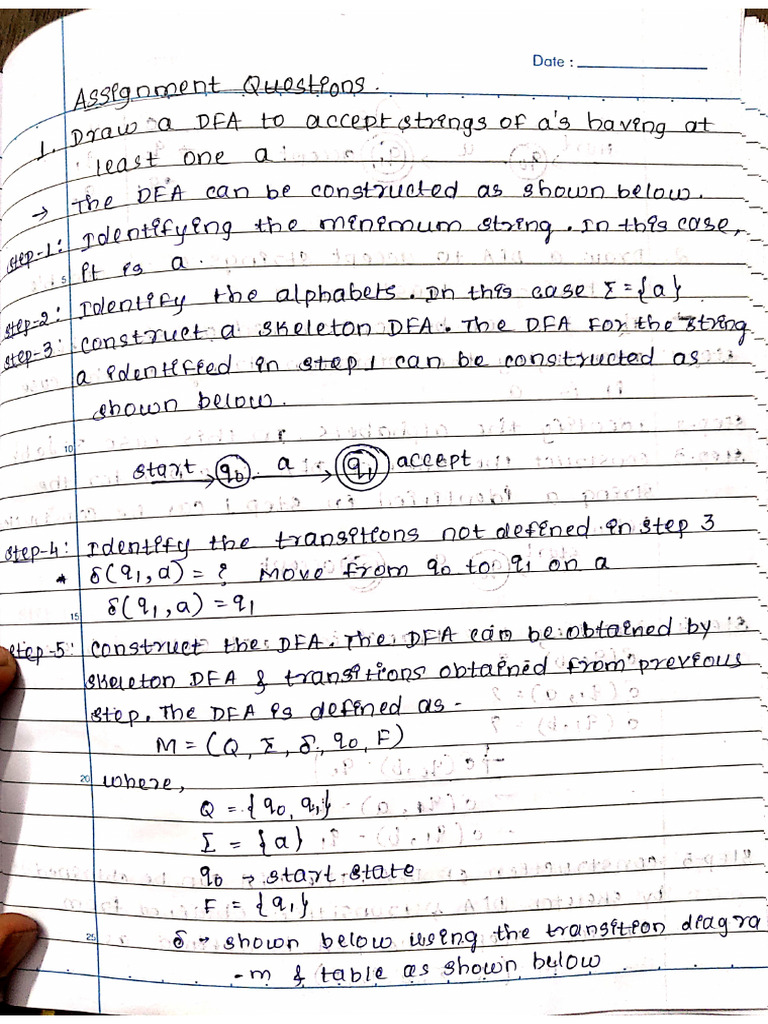 Date :
Assignment Questions.
1. Draw a DFA to accept strings of a's having at
least one a.
→ The DFA can be constructed as shown below.
Step-1: Identifying the minimum string. In this case,
5 it is a.
Step-2: Identify the alphabets. In this case Σ = {a}
Step-3: Construct a skeleton DFA. The DFA for the string
a identified in step 1 can be constructed as
shown below.
10
start q0 a q1 accept
Step-4: Identify the transitions not defined in step 3
* δ(q1, a) = ? Move from q0 to q1 on a
15 δ(q1, a) = q1
Step-5: Construct the DFA. The DFA can be obtained by
skeleton DFA & transitions obtained from previous
step. The DFA is defined as -
M = (Q, Σ, δ, q0, F)
20 where,
Q = {q0, q1}
Σ = {a}
q0 → start state
F = {q1}
25 δ → shown below using the transition diagra
-m & table as shown below